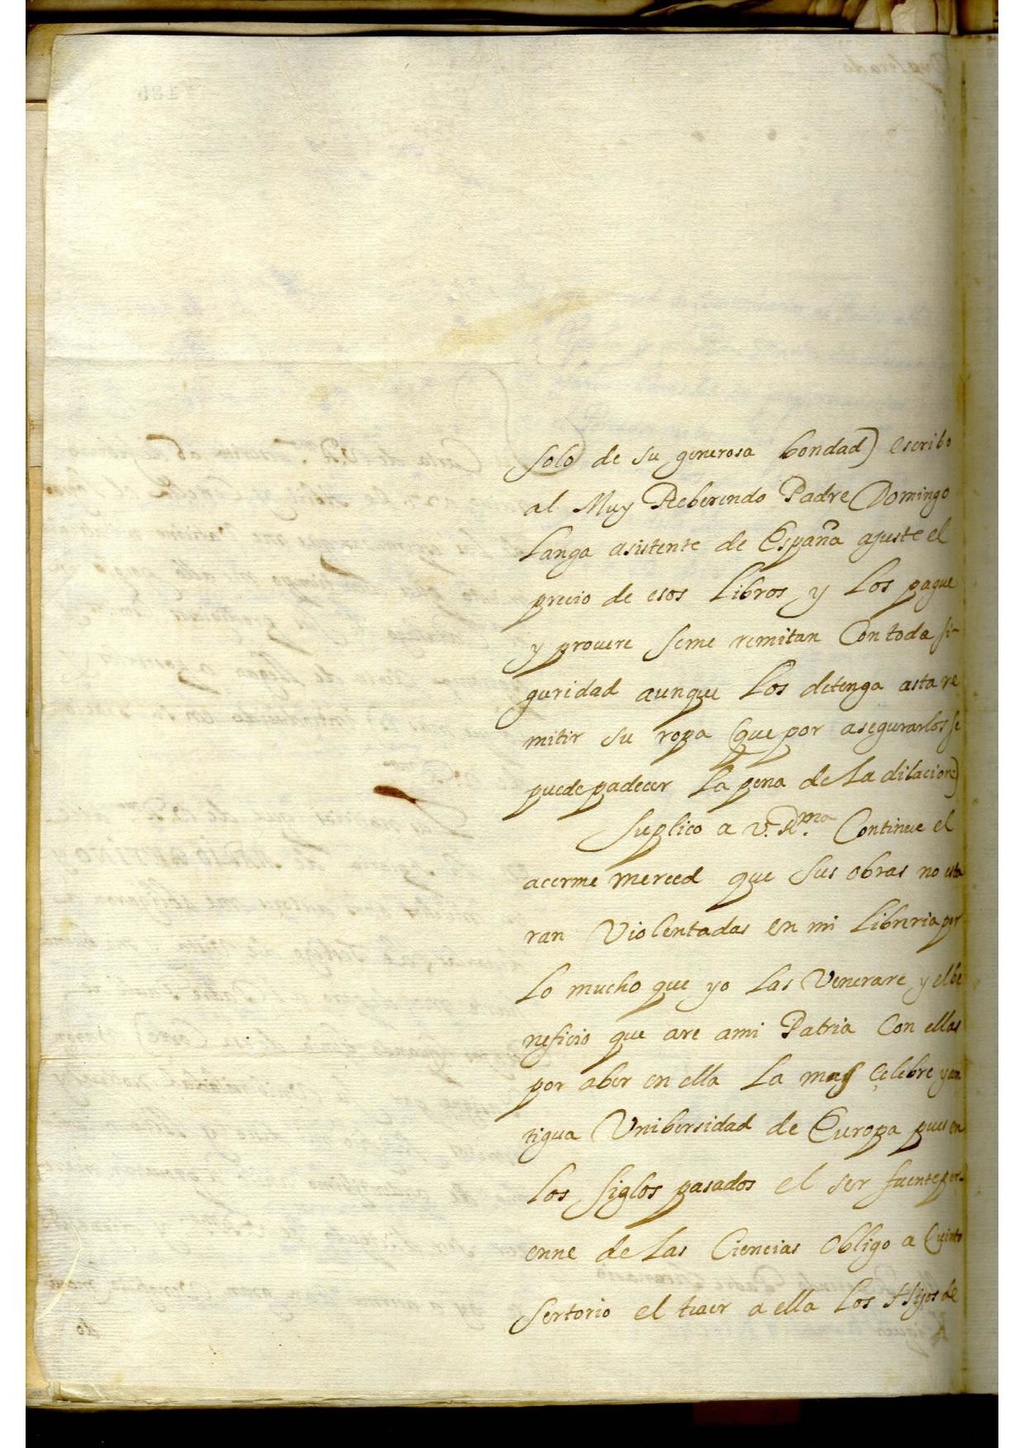 solo de su generosa bondad) escribo
al Muy Reberendo Padre Domingo
Langa asistente de España ajuste el
precio de esos Libros y Los pague
y procure seme remitan Con toda si-
guridad aunque Los detenga asta re
mitir su ropa (que por asegurarlos se
puede padecer La pena de La dilacion)
Suplico a V. Rma. Continue el
acerme merced que sus obras no esta
ran Violentadas en mi Libreria por
Lo mucho que yo Las Venerare y el be
neficio que are ami Patria Con ellas
por aber en ella La mas Celebre y an
tigua Unibersidad de Europa pues en
Los siglos pasados el ser fuente per-
enne de Las Ciencias obligo a Quinto
Sertorio el traer a ella Los Hijos de